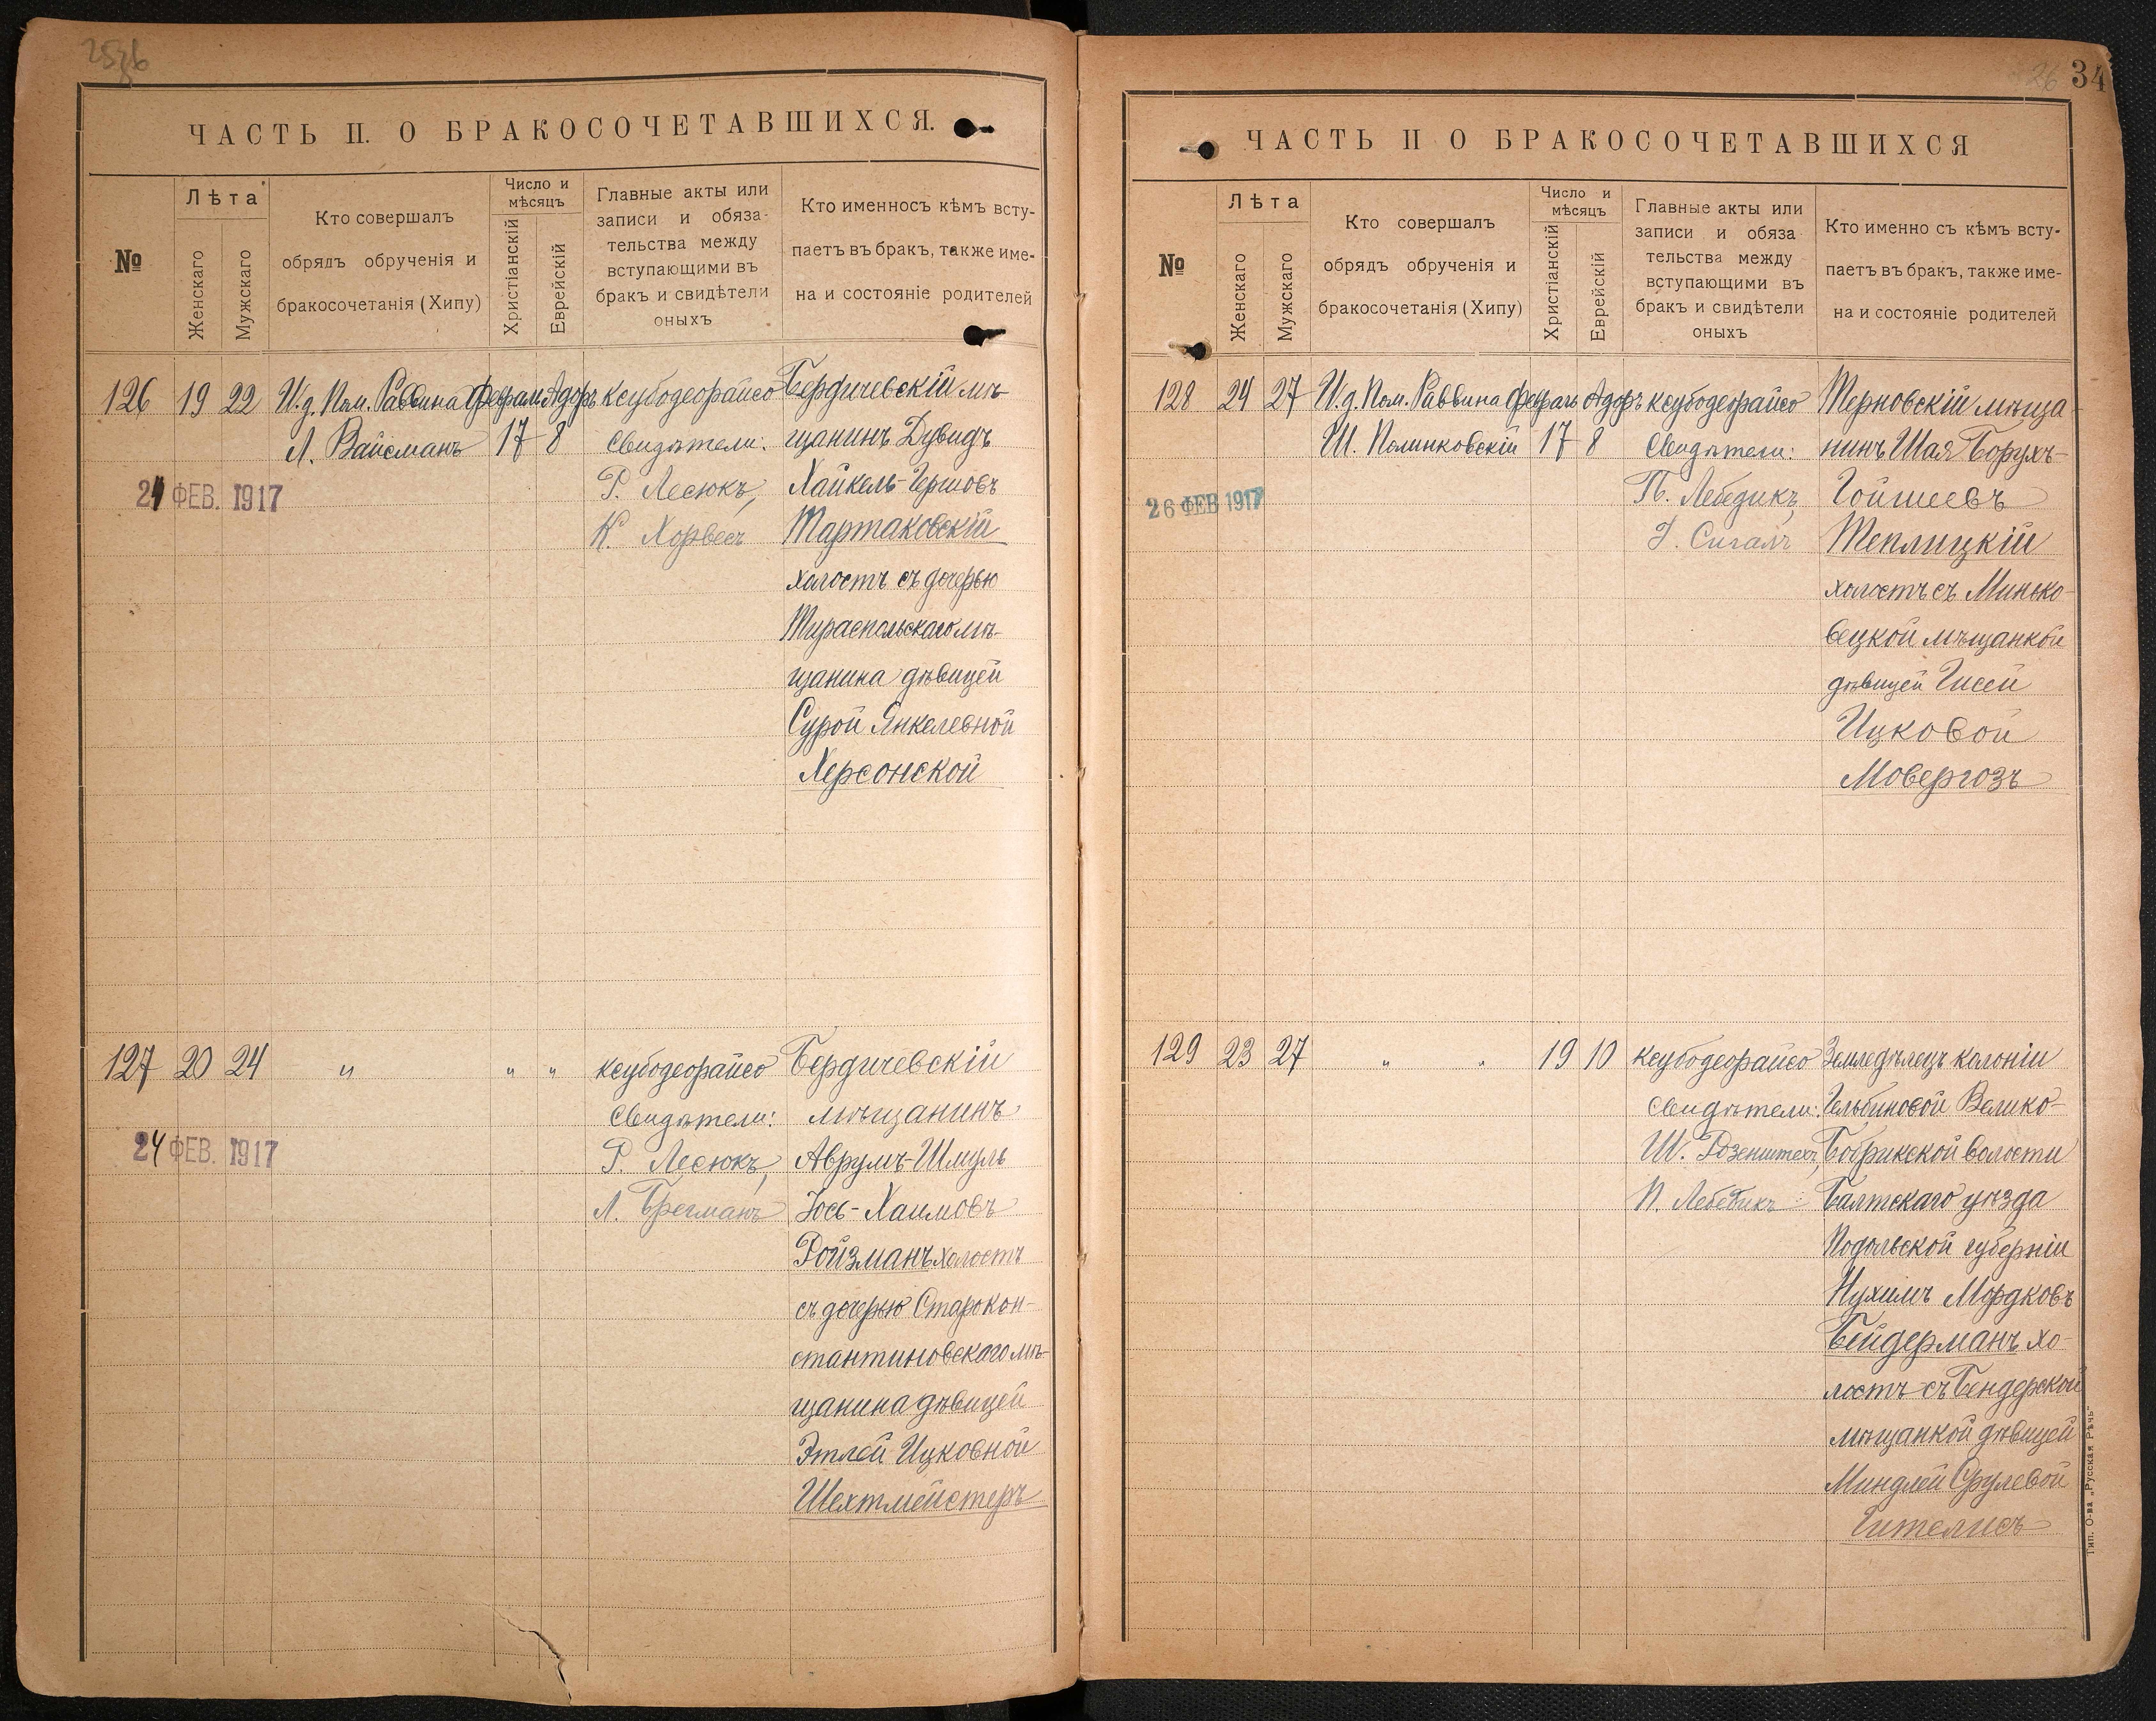 ЧАСТЬ II. О БРАКОСОЧЕТАВШИХСЯ.
№
Лѣта
Женскаго
Мужскаго
Кто совершалъ
обрядъ обрученія и
бракосочетанія (Хипу)
Число и
мѣсяцъ
Христіанскій
Еврейскій
Главные акты или
записи и обяза-
тельства между
вступающими въ
бракъ и свидѣтели
оныхъ
Кто именносъ кѣмъ всту-
паетъ въ бракъ, также име-
на и состояніе родителей
126 19 22 И.д. Пом. Раввина Феврал Адоръ ксубодеорайсо Бердичевскій мѣ-
Л. Вайсманъ 17 8 Свидѣтели: щанинъ Дувидъ
24 ФЕВ. 1917 Р. Лесюкъ, Хайкель-Гершовъ
К. Хорвесъ Тартаковскій
холостъ съ дочерью
Тираспольскаго мѣ-
щанина дѣвицей
Сурой Янкелевной
Херсонской
127 20 24 " " " ксубодеорайсо Бердичевскій
Свидѣтели: мѣщанинъ
24 ФЕВ. 1917 Р. Лесюкъ, Аврумъ-Шмуль
Л. Брегманъ Іось-Хаимовъ
Ройзманъ холостъ
съ дочерью Старокон-
стантиновскаго мѣ-
щанина дѣвицей
Этлей Ицковной
Шехтмейстеръ
34
ЧАСТЬ II О БРАКОСОЧЕТАВШИХСЯ
№
Лѣта
Женскаго
Мужскаго
Кто совершалъ
обрядъ обрученія и
бракосочетанія (Хипу)
Число и
мѣсяцъ
Христіанскій
Еврейскій
Главные акты или
записи и обяза
тельства между
вступающими въ
бракъ и свидѣтели
оныхъ
Кто именно съ кѣмъ всту-
паетъ въ бракъ, также име-
на и состояніе родителей
128 24 27 И.д. Пом. Раввина Феврагь Адоръ ксубодеорайсо Терновскій мѣща-
Ш. Полинковскій 17 8 Свидѣтели: нинъ Шая Борухъ-
26 ФЕВ 1917 П. Лебедикъ, Гойшеевъ
І. Сигалъ Теплицкій
холостъ съ Минько-
вецкой мѣщанкой
дѣвицей Гисей
Ицковой
Мовергозъ
129 23 27 " " 19 10 ксубодеорайсо Земледѣлецъ колоніи
Свидѣтели: Гельбиновой Велико-
Ш. Розенштехъ, Бобрикской волости
П. Лебедикъ Балтскаго уѣзда
Подольской губерніи
Нухимъ Мордковъ
Бейдерманъ хо-
лостъ съ Бендерской
мѣщанкой дѣвицей
Миндлей Срулевой
Гителисъ
Тип. О-ва „Русская Рѣчь“